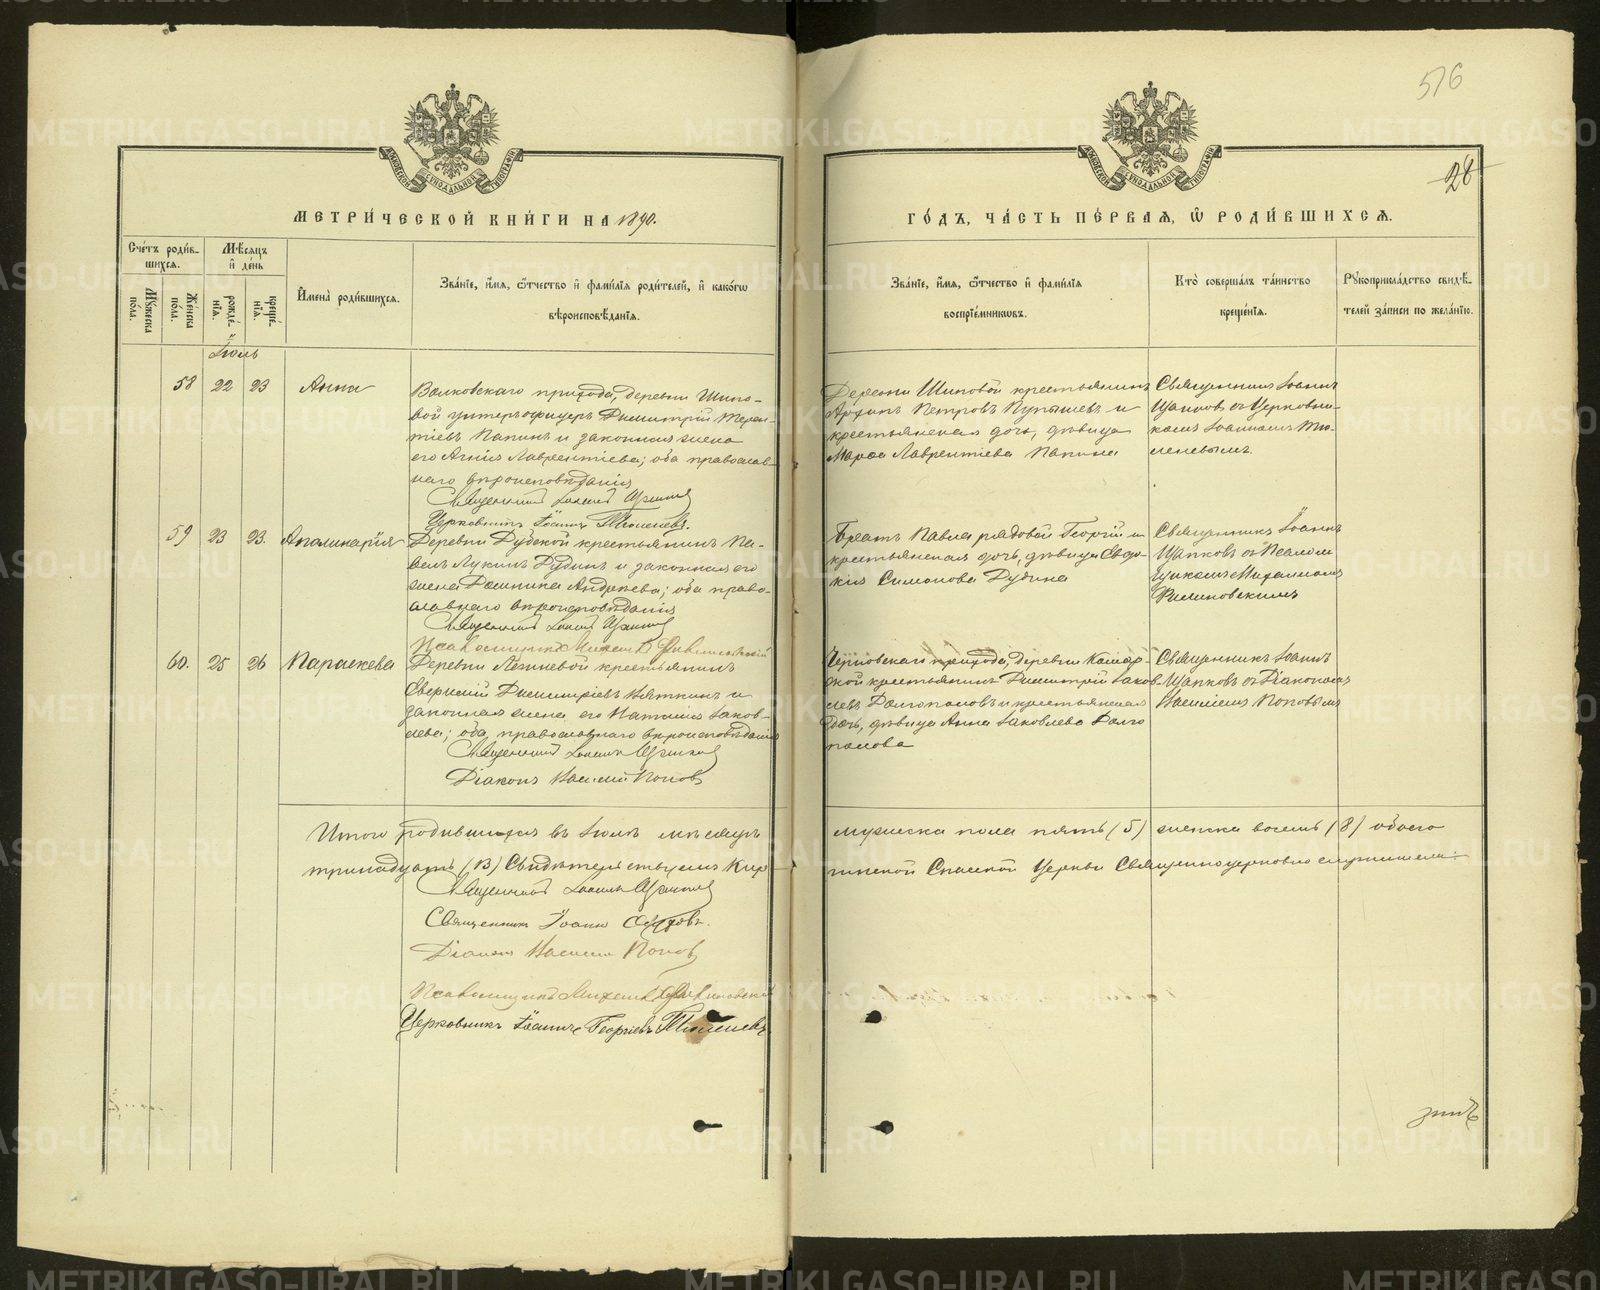 516
28
МЕТРИ́ЧЕСКОЙ КНИ́ГИ НА 1890.
ГО́ДЪ, ЧА́СТЬ ПЕ́РВАЯ, Ѡ҆ РОДИ́ВШИХСЯ.
Сче́тъ роди́вшихся.
Мѣ́сяцъ и҆ де́нь
Му́жеска по́ла.
Же́нска по́ла.
рожде́нїя.
креще́нїя.
И҆мена̀ роди́вшихся.
Зва́нїе, и҆́мя, ѻ҆́тчество и҆ фами́лїя роди́телей, и҆ како́гѡ
вѣроисповѣ́данїя.
Зва́нїе, и҆́мя, ѻ҆́тчество и҆ фами́лїя
воспрїе́мникѡвъ.
Кто̀ соверша́лъ та́инство
креще́нїя.
Рꙋкоприкла́дство свидѣ́-
телей за́писи по жела́нїю.
Іюль
58 22 23 Анна
Волковскаго прихода, деревни Шипо-
вой унтеръ офицеръ Димитрій Терен-
тіевъ Папинъ и законная жена
его Агнія Лаврентіева; оба православ-
наго вѣроисповѣданія
Священникъ Іоаннъ Щапковъ
Церковникъ Іоаннъ Тюменевъ.
Деревни Шиповой крестьянинъ
Архипъ Петровъ Пупышевъ и
крестьянская дочь, дѣвица
Марѳа Лаврентіева Папина
Священникъ Іоаннъ
Щапковъ съ Церковни-
комъ Іоанномъ Тю-
меневымъ.
59 23 23. Аполинарія
Деревни Дубской крестьянинъ Па-
велъ Лукинъ Дудинъ и законная его
жена Домника Андреева; оба право-
славнаго вѣроисповѣданія
Священникъ Іоаннъ Щапковъ
Псаломщикъ Михаилъ
Братъ Павла рядовой Георгій и
крестьянская дочь, дѣвица Евдо-
кія Симонова Дудина
Священникъ Іоаннъ
Щапковъ съ Псалом-
щикомъ Михаиломъ
60. 25 26 Параскева
Деревни крестьянинъ
Димитріевъ Вяткинъ и
законная жена его Наталія Іаков-
лева; оба православнаго вѣроисповѣданія
Священникъ Іоаннъ Щапковъ
Діаконъ Василій Поповъ
прихода, деревни Комар-
ской крестьянинъ Димитрій Іаков-
левъ Долгополовъ и крестьянская
дочь, дѣвица Анна Іаковлева Долго
полова
Священникъ Іоаннъ
Щапковъ съ Діакономъ
Василіемъ Поповымъ
Итого родившихся въ Іюлѣ мѣсяцѣ мужеска пола пять (5) женска восемь (8) обоего
тринадцать (13) Свидѣтельствуемъ Кир-
гинской Спасской Церкви Священноцерковно служители:
Священникъ Іоаннъ Щапковъ
Священникъ Іоаннъ
Діаконъ Василій Поповъ
Псаломщикъ Михаилъ
Церковникъ Іоаннъ Георгіевъ Тюменевъ
METRIKI.GASO-URAL.RU